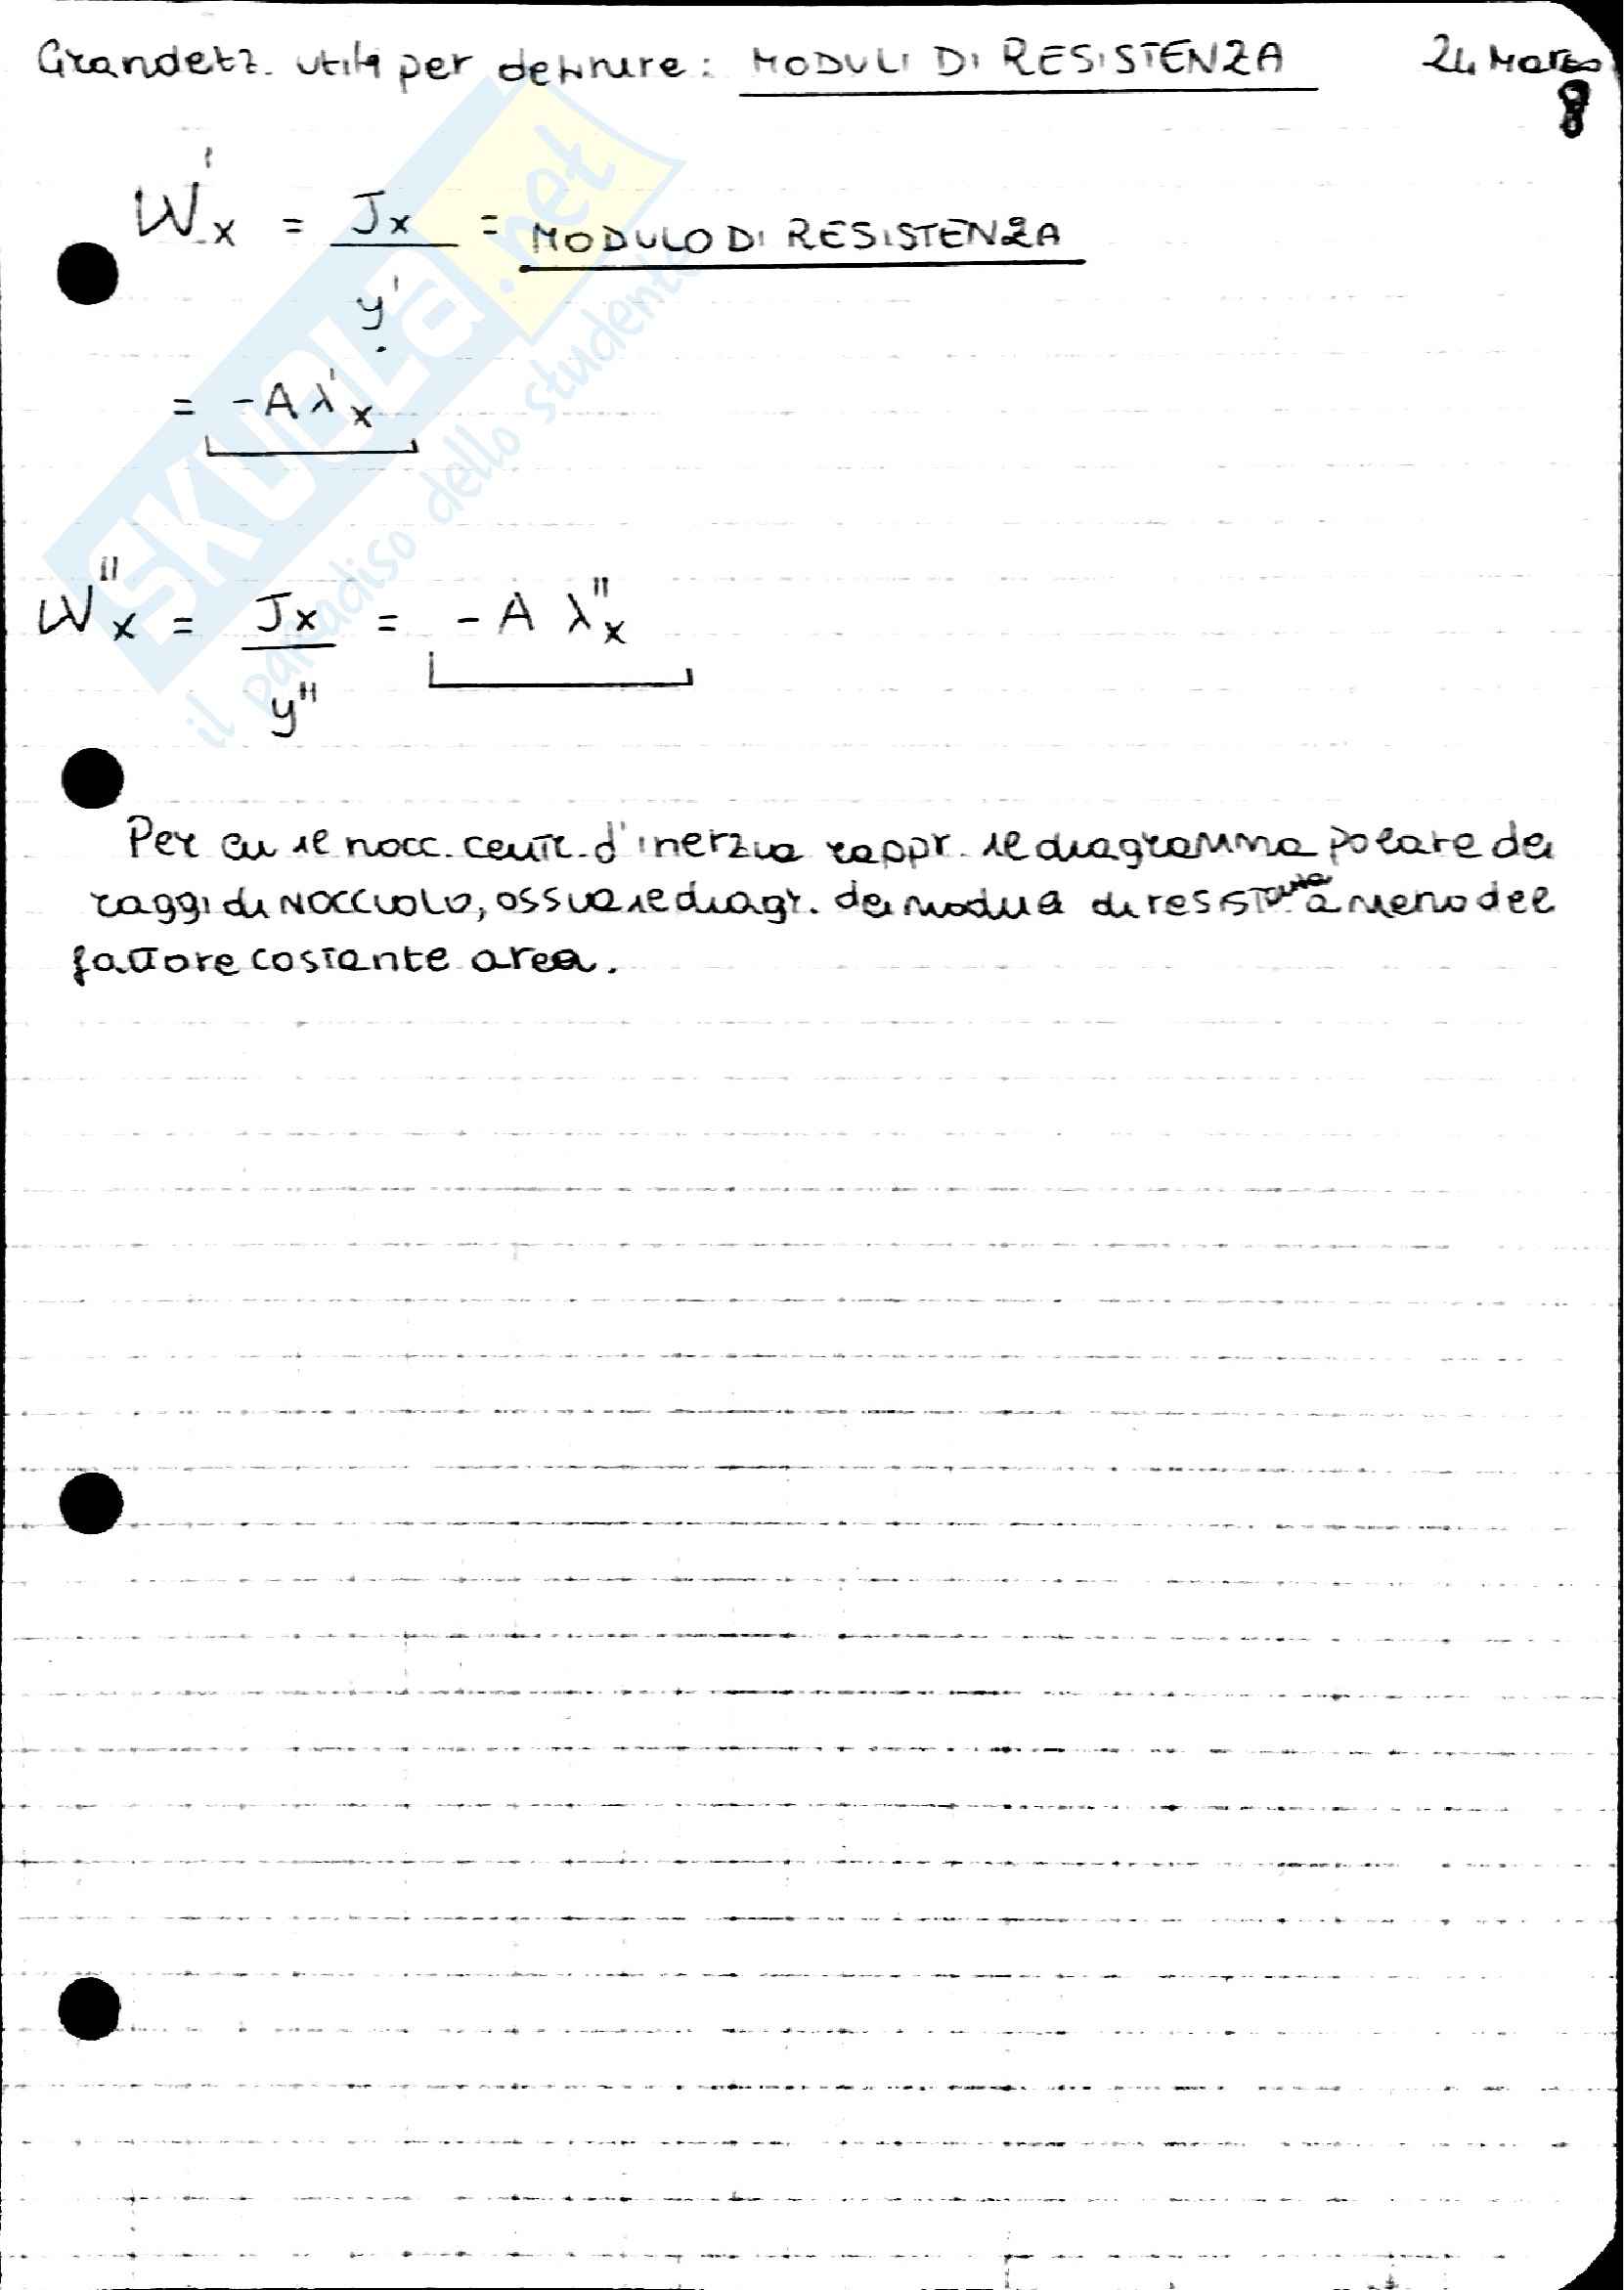 Grandezz. utili per definire: MODULI DI RESISTENZA 24 Marzo
8
W'x = Jx / y' = MODULO DI RESISTENZA
= -Aλ'x
W"x = Jx / y" = -A λ"x
Per cui il nocc. centr. d'inerzia rappr. il diagramma polare dei
raggi di NOCCIOLO, ossia il diagr. dei moduli di resistenza a meno del
fattore costante area.
SKUOLA.net
il paradiso dello studente